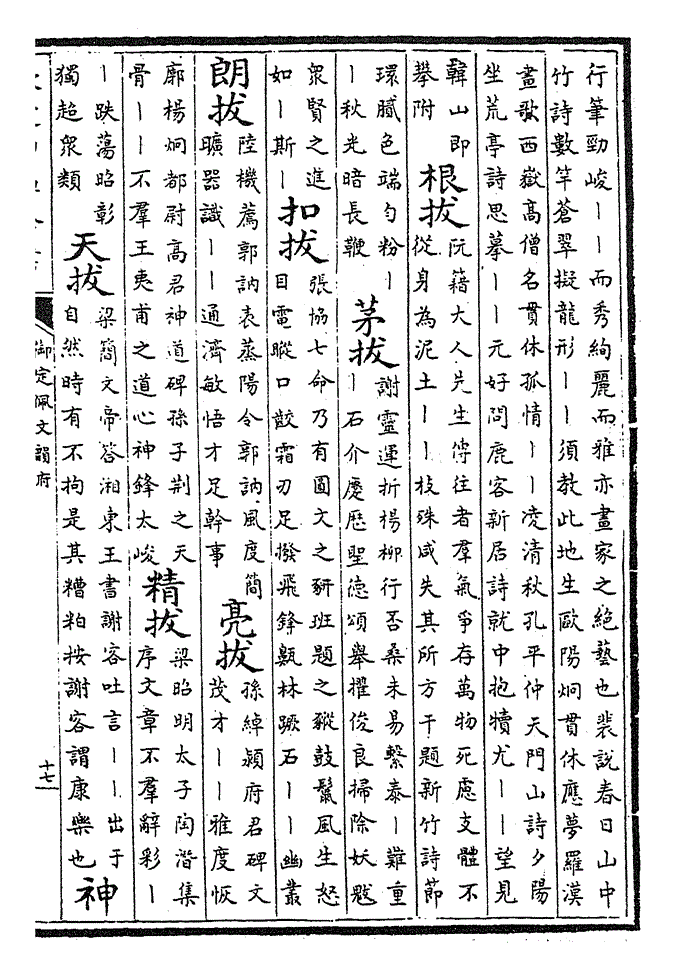 行筆勁峻丨丨而秀絢麗而雅亦畫家之絕藝也裴說春日山中
竹詩數竿蒼翠擬龍形丨丨須教此地生歐陽炯貫休應夢羅漢
畫歌西嶽髙僧名貫休孤情丨丨凌清秋孔平仲天門山詩夕陽
坐荒亭詩思摹丨丨元好問鹿客新居詩就中抱犢尤丨丨望見
韓山即
攀附
根拔
阮籍大人先生傳往者羣氣爭存萬物死慮支體不
從身為泥土丨丨枝殊咸失其所方干題新竹詩節
環膩色端勻粉丨
丨秋光暗長鞭
茅拔
謝靈運折楊柳行否桑未易繫泰丨難重
丨石介慶厯聖德頌舉擢俊良掃除妖魃
衆賢之進
如丨斯丨
扣拔
張協七命乃有圓文之豜班題之豵鼓鬛風生怒
目電瞛口齩霜刃足撥飛鋒甗林蹶石丨丨幽叢
朗拔
陸機薦郭訥表蒸陽令郭訥風度簡
曠器識丨丨通濟敏悟才足幹事
亮拔
孫綽潁府君碑文
茂才丨丨雅度恢
廓楊炯都尉高君神道碑孫子荆之天
骨丨丨不羣王夷甫之道心神鋒太峻
精拔
梁昭明太子陶潜集
序文章不羣辭彩丨
丨跌蕩昭彰
獨超衆類
天拔
梁簡文帝答湘東王書謝客吐言丨丨出于
自然時有不拘是其糟粕按謝客謂康樂也
神
御定佩文韻府
十七